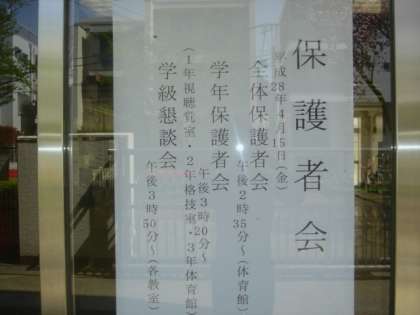 保護者会
平成28年4月15日(金)
全体保護者会
午後2時35分～(体育館)
学年保護者会
午後3時20分～
(1年視聴覚室・2年格技室・3年体育館)
学級懇談会
午後3時50分～(各教室)